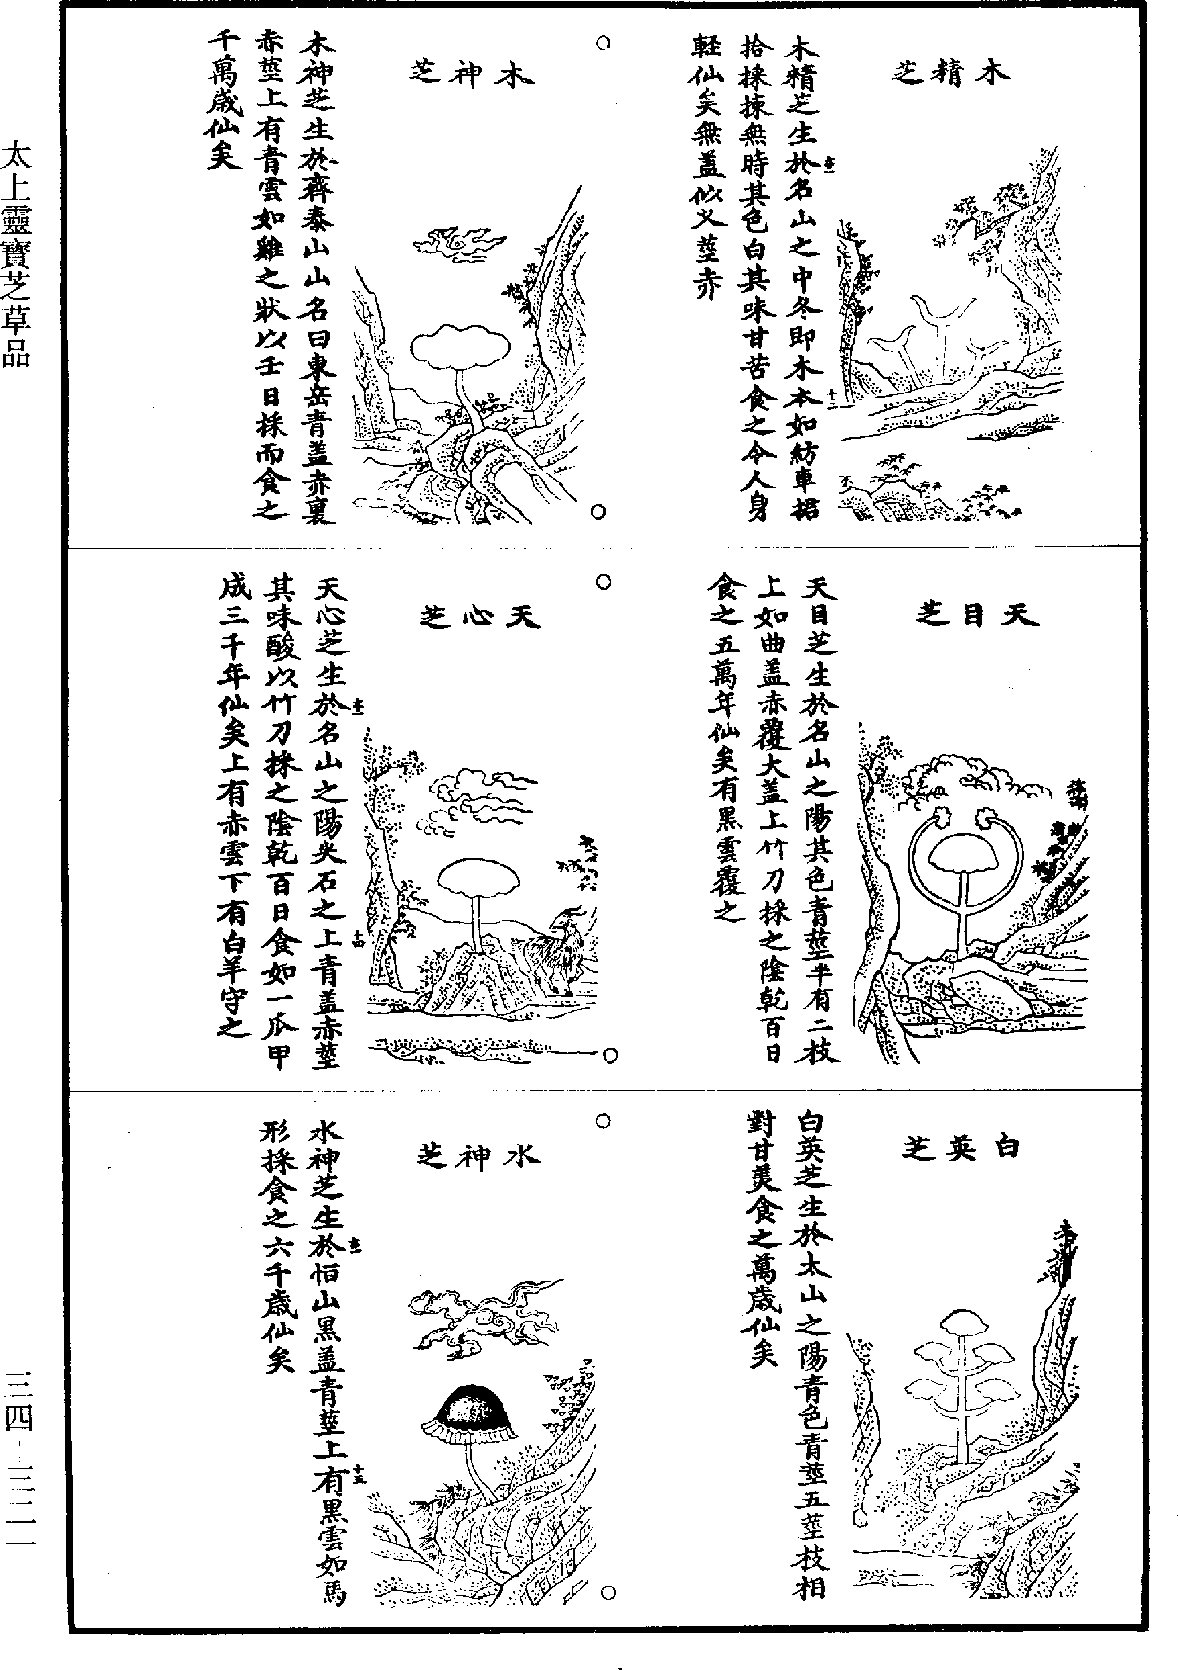 太上靈寶芝草品
三四-三二一
木精芝
木精芝生於名山之中冬即木本如紡車据
拾採揀無時其色白其味甘苦食之令人身
輕仙矣無蓋似义莖赤
木神芝
木神芝生於齊泰山山名曰東岳青蓋赤裏
赤莖上有青雲如雞之狀以壬日採而食之
千萬歲仙矣
十三
天目芝
天目芝生於名山之陽其色青莖半有二枝
上如曲蓋赤覆大蓋上竹刀採之陰乾百日
食之五萬年仙矣有黑雲覆之
天心芝
天心芝生於名山之陽尖石之上青蓋赤莖
其味酸以竹刀採之陰乾百日食如一爪甲
成三千年仙矣上有赤雲下有白羊守之
十四
白英芝
白英芝生於太山之陽青色青莖五莖枝相
對甘美食之萬歲仙矣
水神芝
水神芝生於恒山黑蓋青莖上有黑雲如馬
形採食之六千歲仙矣
十五